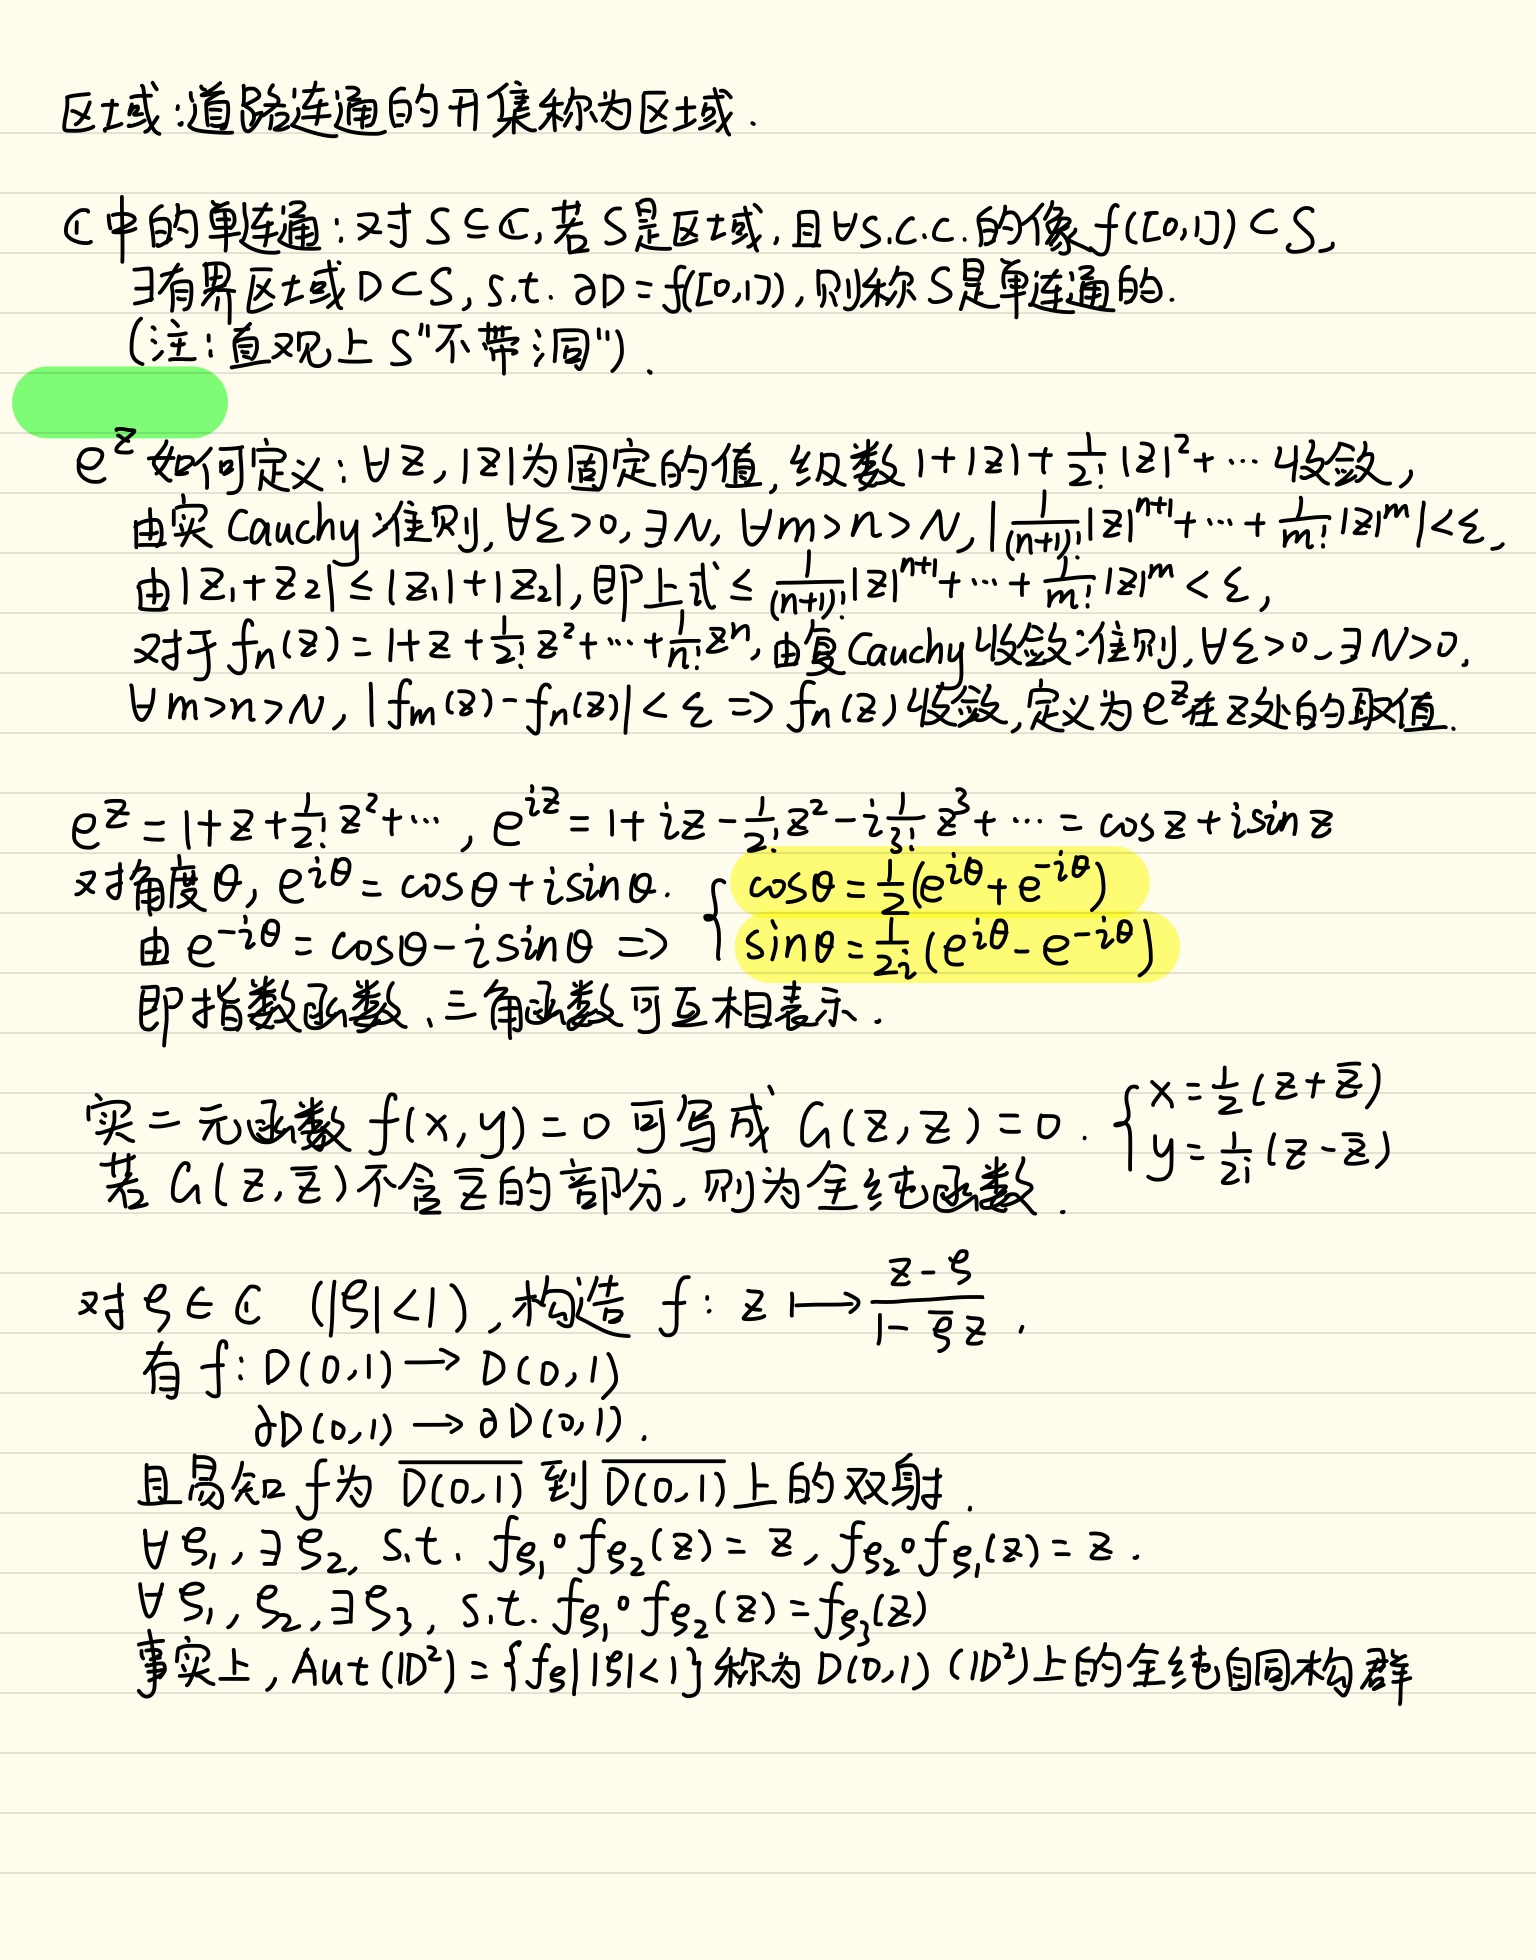 区域:道路连通的开集称为区域.
ℂ中的单连通:对 S⊆ℂ,若S是区域,且∀s.c.c.的像 f([0,1])⊂S,
∃有界区域D⊂S, s.t. ∂D=f([0,1]),则称S是单连通的.
(注:直观上 S"不带洞").
e^z 如何定义:∀z, |z|为固定的值,级数 1+|z|+\frac{1}{2!}|z|^2+⋯ 收敛,
由实 Cauchy 准则,∀ε>0,∃N, ∀m>n>N, |\frac{1}{(n+1)!}|z|^{n+1}+⋯+\frac{1}{m!}|z|^m|<ε,
由|z_1+z_2|≤|z_1|+|z_2|,即上式≤\frac{1}{(n+1)!}|z|^{n+1}+⋯+\frac{1}{m!}|z|^m<ε,
对于 f_n(z)=1+z+\frac{1}{2!}z^2+⋯+\frac{1}{n!}z^n,由复Cauchy收敛准则,∀ε>0,∃N>0,
∀m>n>N, |f_m(z)-f_n(z)|<ε ⇒ f_n(z)收敛,定义为e^z在z处的取值.
e^z=1+z+\frac{1}{2!}z^2+⋯, e^{iz}=1+iz-\frac{1}{2!}z^2-i\frac{1}{3!}z^3+⋯=cosz+isinz
对角度θ, e^{iθ}=cosθ+isinθ. { cosθ=\frac{1}{2}(e^{iθ}+e^{-iθ})
由 e^{-iθ}=cosθ-isinθ ⇒ sinθ=\frac{1}{2i}(e^{iθ}-e^{-iθ})
即指数函数、三角函数可互相表示.
实二元函数 f(x,y)=0 可写成 G(z,z)=0. { x=\frac{1}{2}(z+\bar{z})
y=\frac{1}{2i}(z-\bar{z})
若 G(z,\bar{z})不含\bar{z}的部分,则为全纯函数.
对ξ∈ℂ (|ξ|<1),构造 f: z⟼\frac{z-ξ}{1-\bar{ξ}z}.
有 f: D(0,1)→D(0,1)
∂D(0,1)→∂D(0,1).
且易知 f为 \overline{D(0,1)} 到 \overline{D(0,1)}上的双射.
∀ξ_1,∃ξ_2, s.t. f_{ξ_1}∘f_{ξ_2}(z)=z, f_{ξ_2}∘f_{ξ_1}(z)=z.
∀ξ_1,ξ_2,∃ξ_3, s.t. f_{ξ_1}∘f_{ξ_2}(z)=f_{ξ_3}(z)
事实上, Aut(𝔻^2)={f_ξ||ξ|<1}称为D(0,1)(𝔻^2)上的全纯自同构群